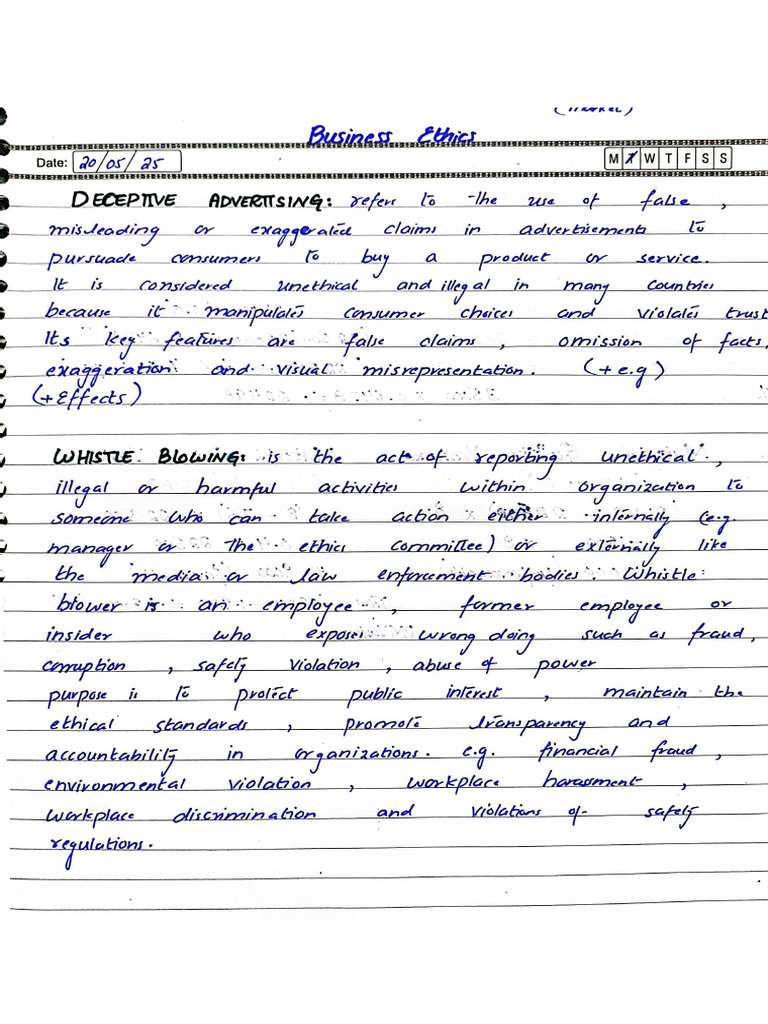 (market)
Business Ethics
Date: 20/05/25 M T W T F S S
DECEPTIVE ADVERTISING: refers to the use of false,
misleading or exaggerated claims in advertisements to
pursuade consumers to buy a product or service.
It is considered unethical and illegal in many countries
because it manipulates consumer choices and violates trust
Its key features are false claims, omission of facts,
exaggeration and visual misrepresentation. (+ e.g)
(+ Effects)
WHISTLE BLOWING: is the act of reporting unethical,
illegal or harmful activities within organization to
someone who can take action either internally (e.g.
manager or the ethics committee) or externally like
the media or law enforcement bodies. Whistle
blower is an employee, former employee or
insider who exposes wrong doing such as fraud,
corruption, safety violation, abuse of power
purpose is to protect public interest, maintain the
ethical standards, promote transparency and
accountability in organizations. e.g. financial fraud,
environmental violation, workplace harassment,
workplace discrimination and violations of safety
regulations.